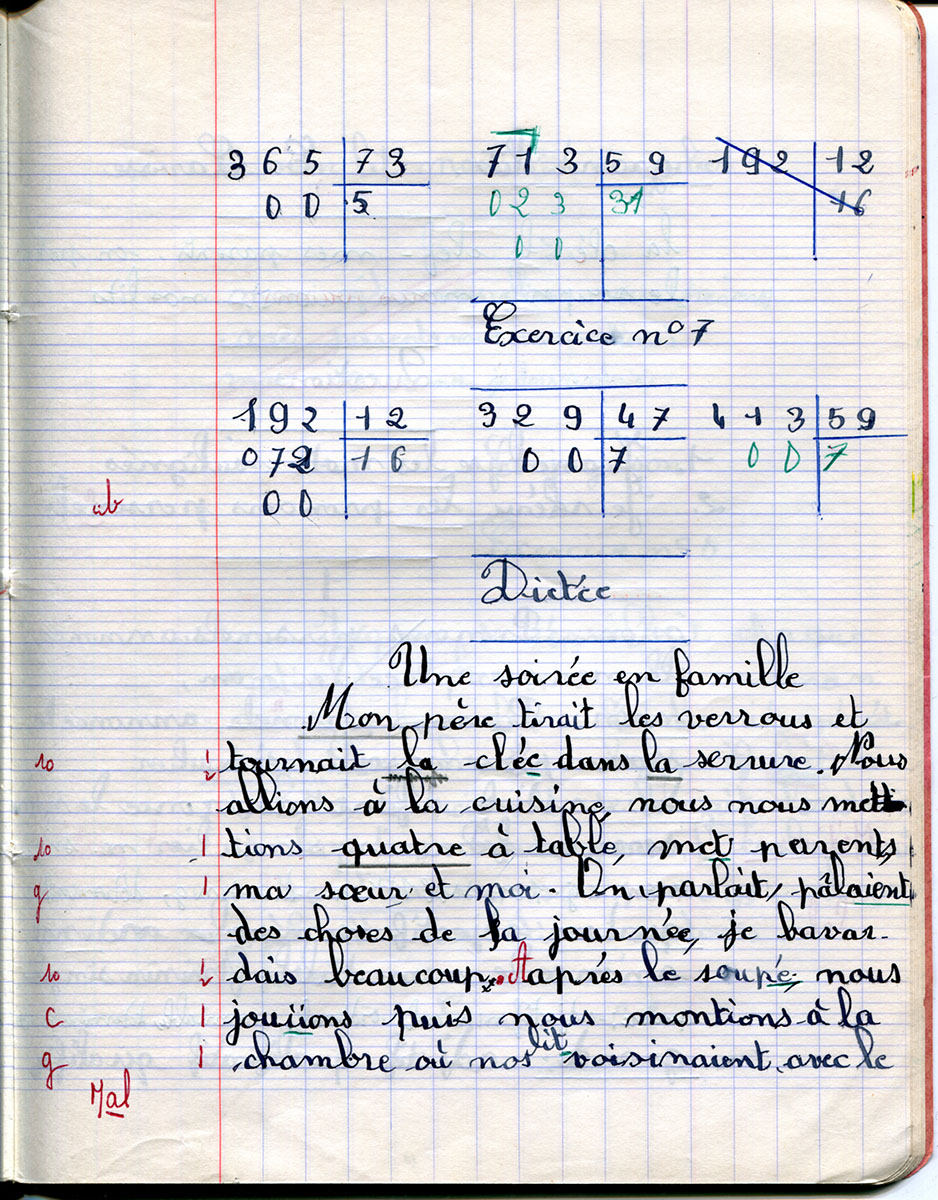 365 73 713 59 192 12
00 5 023 31 16
00
Exercice n° 7
192 12 329 47 413 59
072 16 00 7 00 7
00
ub
Dictée
Une soirée en famille
Mon père tirait les verrous et
10 tournait la cléc dans la serrure. Nous
allions à la cuisine, nous nous mett
10 | tions quatre à table, met parents,
g | ma sœur et moi. On parlait, pâlaient
des choses de la journée, je bavar-
10 dais beaucoup. Aaprés le soupé, nous
c | jouiions puis nous montions à la
lit
g | chambre où nos voisinaient avec le
Mal